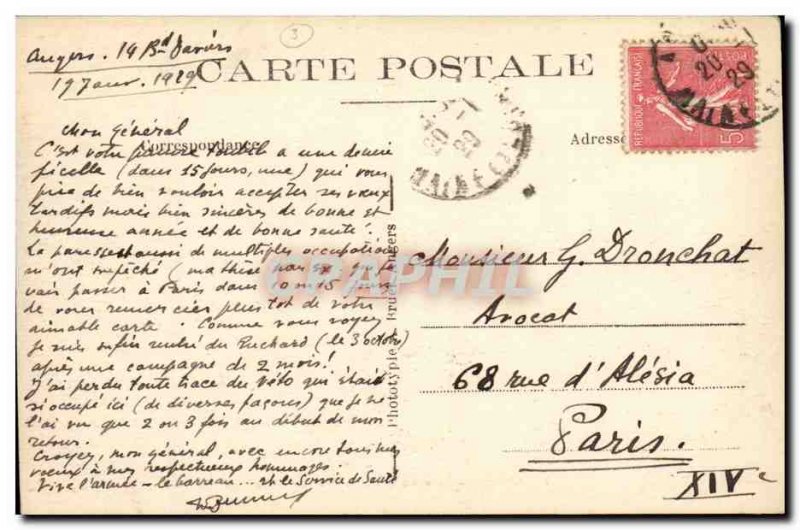 Angers. 14 Bd Daviers
17 Janv. 1929
3
CARTE POSTALE
Mon Général
Correspondance
Adresse
C'est votre pauvre à une demie
ficelle (dans 15 jours, une) qui vous
prie de bien vouloir accepter ses vœux
tardifs mais bien sincères de bonne et
heureuse année et de bonne santé.
La paresse et aussi de multiples occupations
m'ont empêché (ma thèse par ex que je
vais passer à Paris dans 10 ou 15 jours)
de vous remercier plus tôt de votre
aimable carte. Comme vous voyez
je suis enfin rentré du Ruchard (le 3 octobre)
après une campagne de 2 mois!
J'ai perdu toute trace du Véto qui était
si occupé ici (de diverses façons) que je ne
l'ai vu que 2 ou 3 fois au début de mon
retour.
Croyez, mon général, avec encore tous mes
vœux à mes respectueux hommages.
Vive l'armée - le barreau ... et le Service de Santé
Phototypie Bruel, Angers
Monsieur G. Dronchat
Avocat
68 rue d'Alésia
Paris.
XIVe
REPUBLIQUE FRANÇAISE
20 -1 29
MAINE
20 -1 29
MAINE
CAPHIL